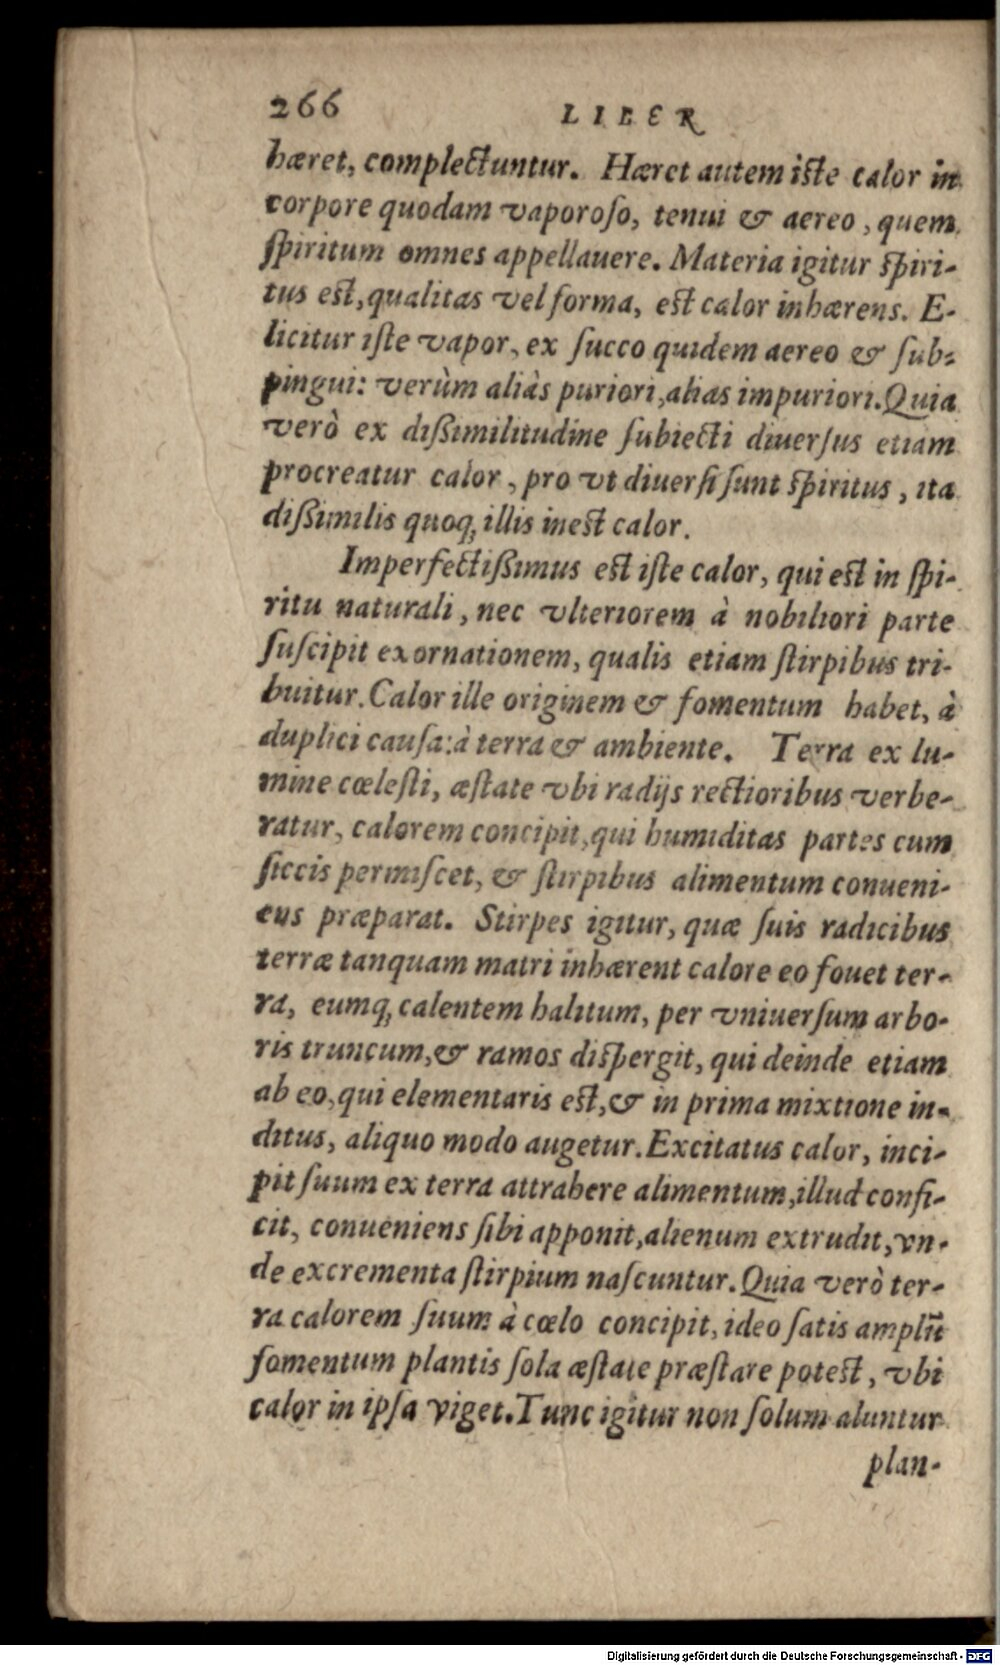 266 LIBER
hæret, complectuntur. Hæret autem iste calor in
corpore quodam vaporoſo, tenui & aereo, quem
ſpiritum omnes appellauere. Materia igitur ſpiri-
tus est, qualitas vel forma, est calor inhærens. E-
licitur iſte vapor, ex ſucco quidem aereo & ſub-
pingui: verùm aliàs puriori, alias impuriori. Quia
verò ex diſſimilitudine ſubiecti diuerſus etiam
procreatur calor, pro vt diuerſi ſunt ſpiritus, ita
diſſimilis quoq; illis inest calor.
Imperfectiſſimus est iſte calor, qui est in ſpi-
ritu naturali, nec vlteriorem à nobiliori parte
ſuſcipit exornationem, qualis etiam ſtirpibus tri-
buitur. Calor ille originem & fomentum habet, à
duplici cauſa: à terra & ambiente. Terra ex lu-
mine cœleſti, æſtate vbi radijs rectioribus verbe-
ratur, calorem concipit, qui humiditas partes cum
ſiccis permiſcet, & ſtirpibus alimentum conueni-
ens præparat. Stirpes igitur, quæ ſuis radicibus
terræ tanquam matri inhærent calore eo fouet ter-
ra, eumq; calentem halitum, per vniuerſum arbo-
ris truncum, & ramos diſpergit, qui deinde etiam
ab eo, qui elementaris est, & in prima mixtione in-
ditus, aliquo modo augetur. Excitatus calor, inci-
pit ſuum ex terra attrahere alimentum, illud confi-
cit, conueniens ſibi apponit, alienum extrudit, vn-
de excrementa ſtirpium naſcuntur. Quia verò ter-
ra calorem ſuum à cœlo concipit, ideo ſatis amplũ
fomentum plantis ſola æſtate præſtare potest, vbi
calor in ipſa viget. Tunc igitur non ſolum aluntur
plan-
Digitalisierung gefördert durch die Deutsche Forschungsgemeinschaft - DFG